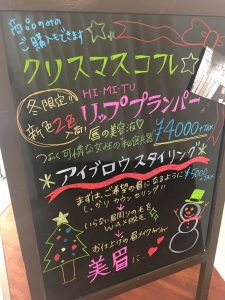 商品のみの
ご購入もできます
クリスマスコフレ☆
HI・MI・TU
冬限定の
リッププランパー
新色2色
入荷! 唇の美容液♡
¥4000+TAX
つよく可憐な女性の秘密兵器
アイブロウスタイリング
まずは、ご希望の眉になるように
しっかりカウンセリング!!
¥5000
+TAX
いらない眉周りの毛を
WAX脱毛
お仕上げの眉メイクが
美眉に…